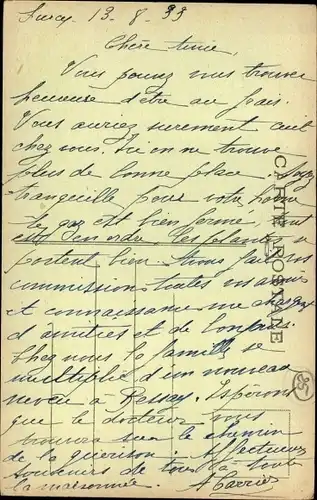 13 - 8 - 33
Chère amie,
Vous pouvez nous trouver
heureuse d'être au frais.
Vous auriez surement cuit
chez vous. Ici on ne trouve
plus de bonne place. Soyez
tranquille pour votre bonne
le gaz est bien fermé, tout
est en ordre, les plantes se
portent bien. Nous faisons
commissions toutes
et connaissances me chargent
d'amitiés et de
Chez nous la famille se
multiplie d'un nouveau
neveu à Ressay. Espérons
que le docteur vous
trouvera sur le chemin
de la guérison. Affectueux
souvenirs de tous à toute
la maisonnée.
CARTE POSTALE